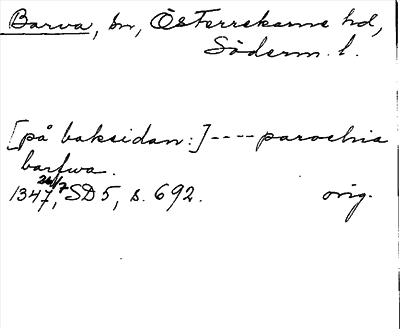 Barva, sn, Österrekarne hd,
Söderm. l.
[på baksidan:] ---- parochia
barfwa.
1347, 26/7 SD 5, s. 692. orig.